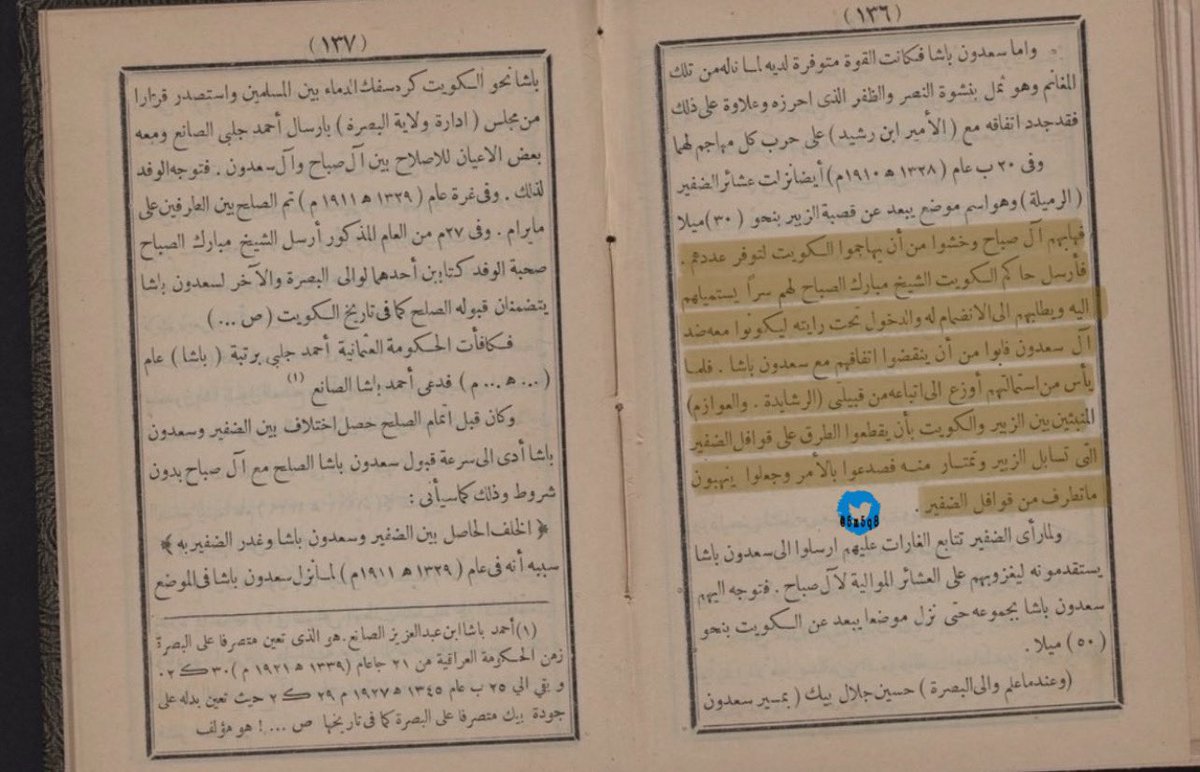 (١٣٦)
واما سعدون باشا فكانت القوة متوفرة لديه لما ناله من تلك
المغانم وهو ثمل بنشوة النصر والظفر الذى احرزه وعلاوة على ذلك
فقد جدد اتفاقه مع ( الأمير ابن رشيد ) على حرب كل مهاجم لهما
وفى ٢٠ ب عام ( ١٣٢٨ ه ١٩١٠ م ) أيضا نزلت عشائر الضفير
( الرميلة ) وهو اسم موضع يبعد عن قصبة الزبير بنحو ( ٣٠ ) ميلا
فهابهم آل صباح وخشوا من أن يهاجموا الكويت لتوفر عددهم .
فأرسل حاكم الكويت الشيخ مبارك الصباح لهم سراً يستميلهم
اليه ويطلبهم الى الانضمام له والدخول تحت رايته ليكونوا معه ضد
آل سعدون فابوا من أن ينقضوا اتفاقهم مع سعدون باشا . فلما
يأس من استمالتهم أوزع الى اتباعه من قبيلتى (الرشايدة . والعوازم)
المنبثين بين الزبير والكويت بأن يقطعوا الطرق على قوافل الضفير
التى تسابل الزبير وتمتار منه فصدعوا بالأمر وجعلوا ينهبون
ماتطرف من قوافل الضفير .
05m5q8
ولما رأى الضفير تتابع الغارات عليهم ارسلوا الى سعدون باشا
يستقدمونه ليغزو بهم على العشائر الموالية لآل صباح . فتوجه اليهم
سعدون باشا بجموعه حتى نزل موضعا يبعد عن الكويت بنحو
( ٥٠ ) ميلا .
(وعندما علم والى البصرة ) حسين جلال بيك ( بمسير سعدون
(١٣٧)
باشا نحو الكويت كره سفك الدماء بين المسلمين واستصدر قرارا
من مجلس ( ادارة ولاية البصرة ) بارسال أحمد جلبى الصانع ومعه
بعض الاعيان للاصلاح بين آل صباح وآل سعدون . فتوجه الوفد
لذلك . وفى غرة عام ( ١٣٢٩ ه ١٩١١ م ) تم الصلح بين الطرفين على
مايرام . وفى ٢٧ م من العام المذكور أرسل الشيخ مبارك الصباح
صحبة الوفد كتابين أحدهما لوالى البصرة والآخر لسعدون باشا
يتضمنان قبوله الصلح كما فى تاريخ الكويت ( ص ... )
فكافأت الحكومة العثمانية أحمد جلبى برتبة ( باشا ) عام
( ... ه ... م ) فدعى أحمد باشا الصانع (١)
وكان قبل اتمام الصلح حصل اختلاف بين الضفير وسعدون
باشا أدى الى سرعة قبول سعدون باشا الصلح مع آل صباح بدون
شروط وذلك كما سيأتى :
﴿ الخلف الحاصل بين الضفير وسعدون باشا وغدر الضفير به ﴾
سببه أنه فى عام ( ١٣٢٩ ه ١٩١١ م ) لما نزل سعدون باشا فى الموضع
(١) أحمد باشا ابن عبد العزيز الصانع . هو الذى تعين متصرفا على البصرة
زمن الحكومة العراقية من ٢١ جا عام (١٣٣٩ ه ١٩٢١ م) ٣٠ ك ٢ .
و بقي الي ٢٥ ب عام ١٣٤٥ ه ١٩٢٧ م ٢٩ ك ٢ حيث تعين بدله على
جودة بيك متصرفا على البصرة كما فى تاريخها ص ... ! هو مؤلف